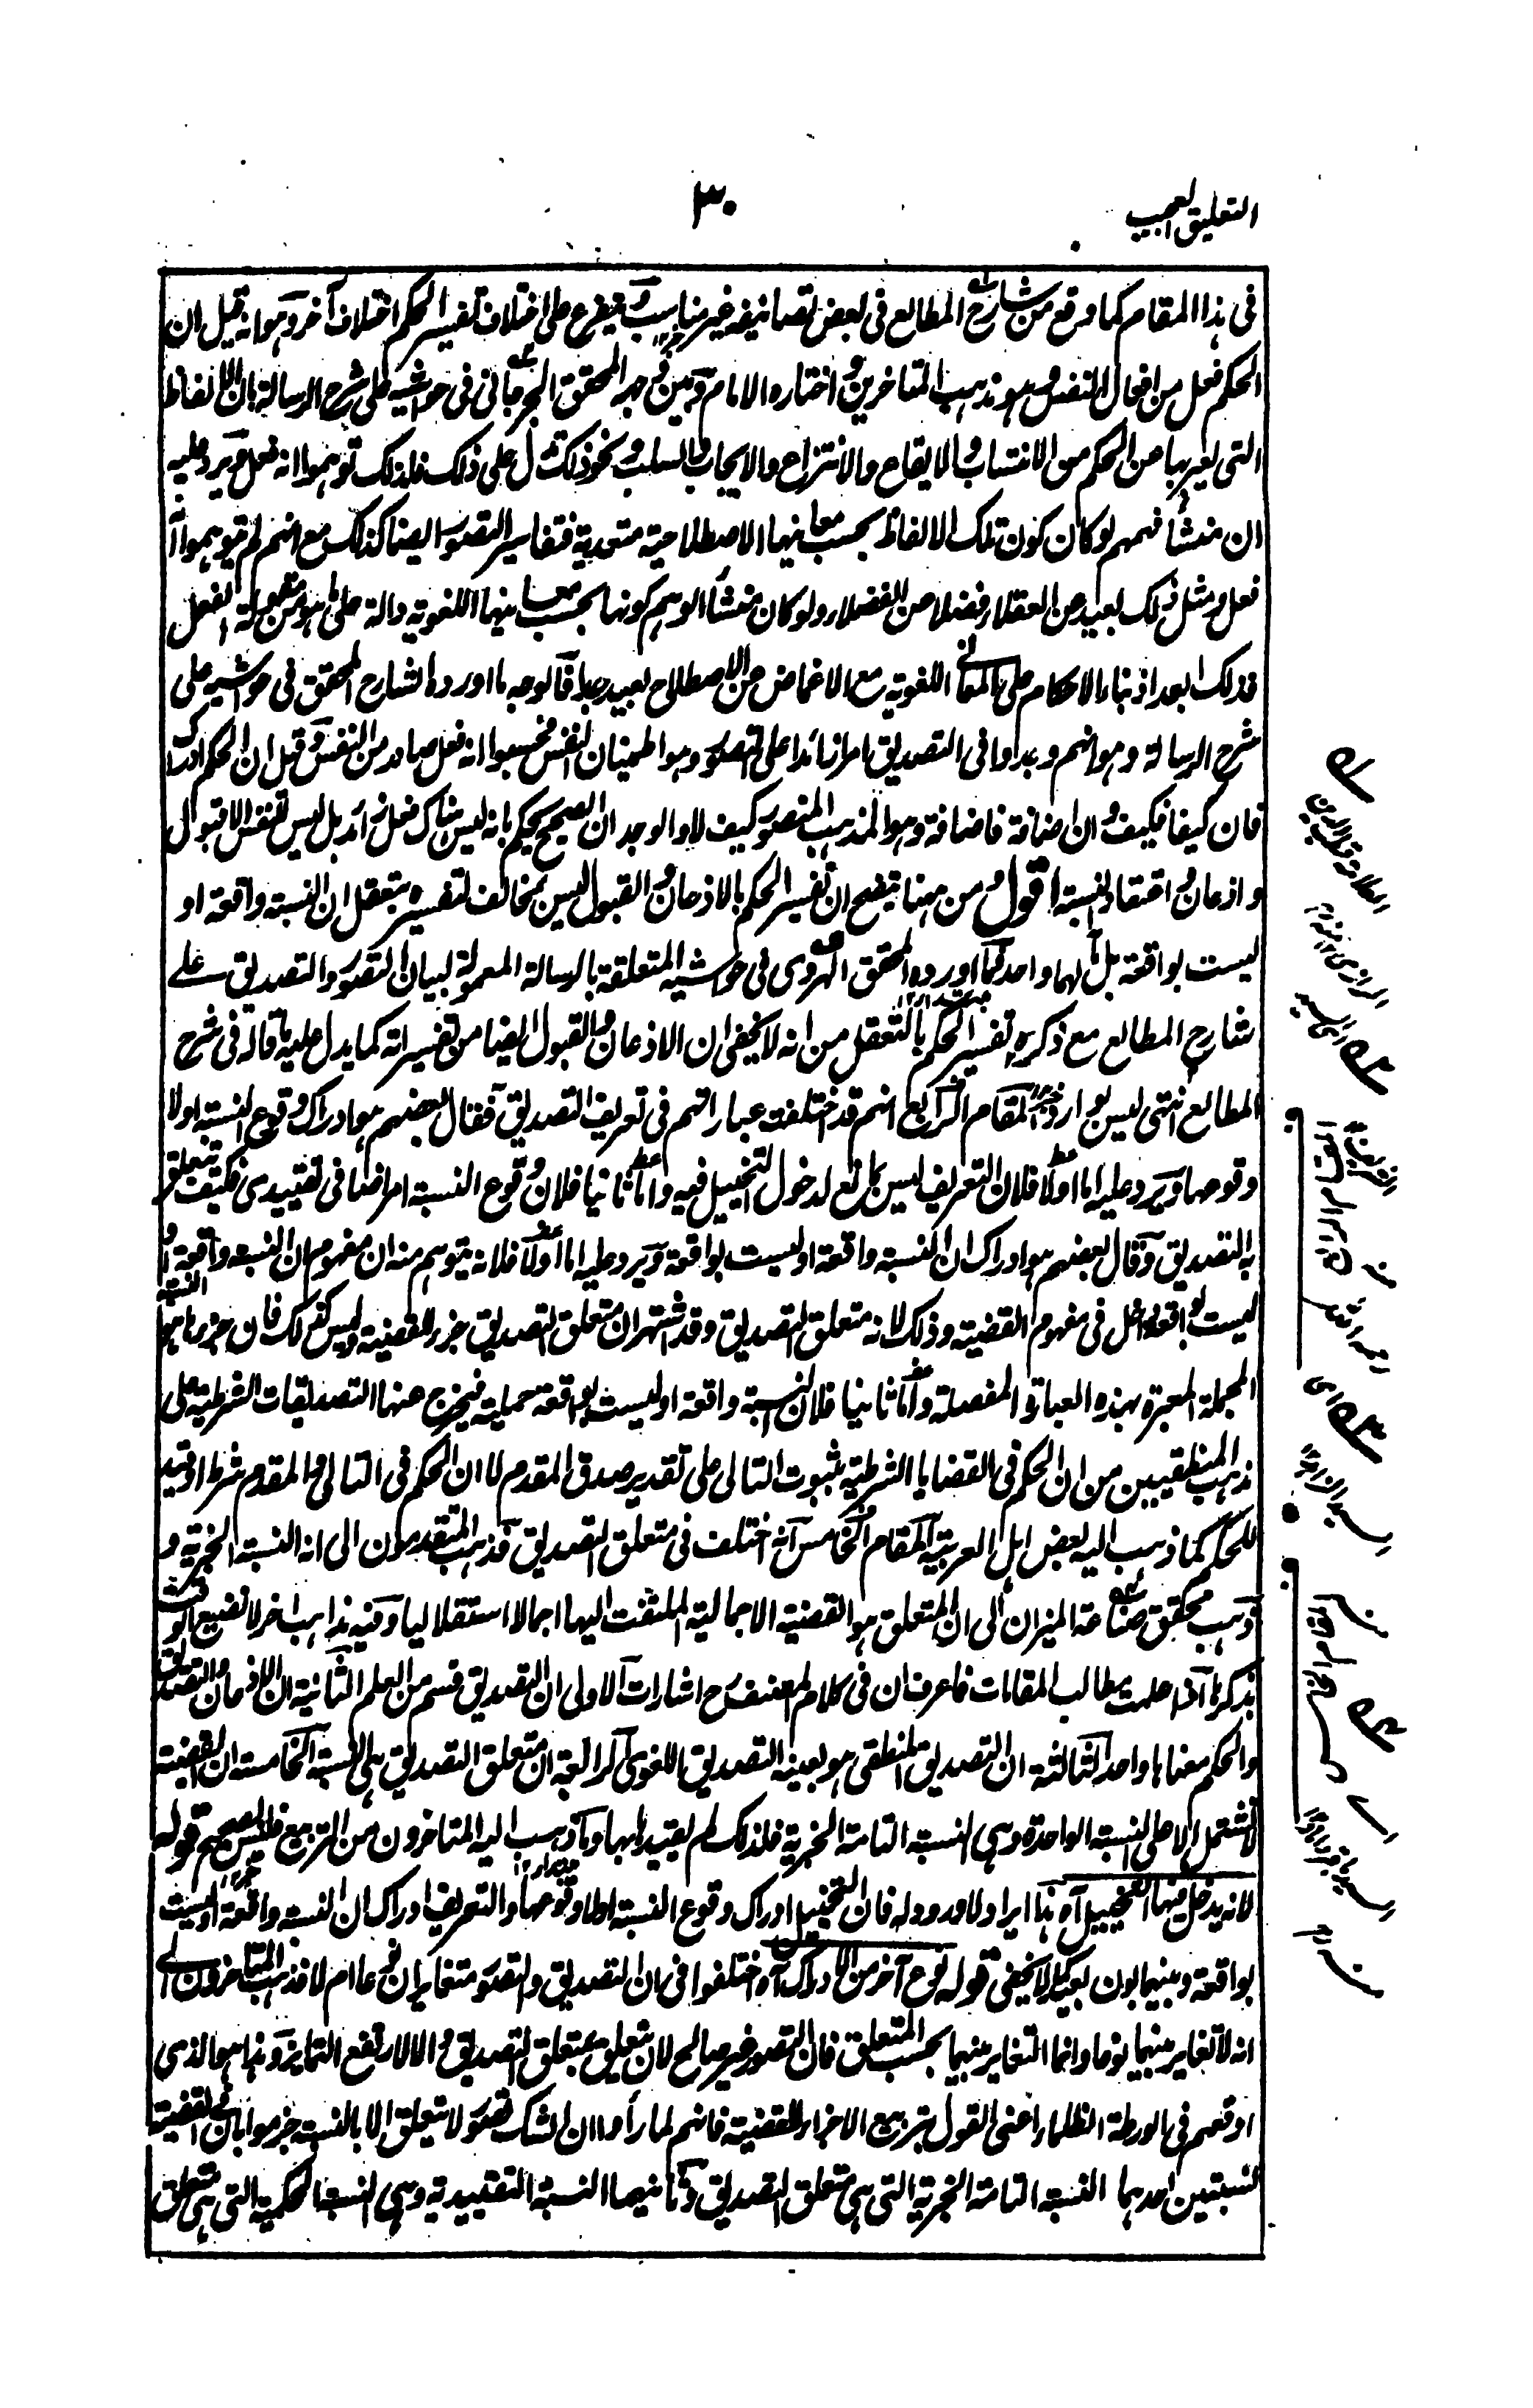 التعليق العجيب
٣٠
فى هذا المقام كما وقع من شارح المطالع فى بعض تصانيفه غير مناسب ويتفرع على اختلاف تفسير الحكم اختلاف آخر وهو انه قيل ان
الحكم فعل من افعال النفس وهو مذهب المتاخرين واختاره الامام وبين وجهه المحقق الجرجانى فى حواشيه على شرح الرسالة بان الالفاظ
التى يعبر بها عن الحكم من الانتساب والايقاع والانتزاع والايجاب والسلب ونحو ذلك تدل على ذلك فلذلك توهموا انه فعل ويرد عليه
ان منشأ فهمهم لو كان كون تلك الالفاظ بحسب معانيها الاصطلاحية متعدية فتفاسير التصور ايضا كذلك مع انهم لم يتوهموا انه
فعل ومثل ذلك بعيد عن العقلاء فضلا عن الفضلاء ولو كان منشأ الوهم كونها بحسب معانيها اللغوية دالة على ما هو من مقولة الفعل
فذلك ابعد اذ بناء الاحكام على المعانى اللغوية مع الاغماض عن الاصطلاح بعيد جدا فالوجه ما اورده الشارح المحقق فى حواشيه على
شرح الرسالة وهو انهم وجدوا فى التصديق امرا زائدا على التصور وهو اطمينان النفس فحسبوا انه فعل صادر من النفس وقيل ان الحكم ادراك
فان كيفا فكيف وان اضافة فاضافة وهو المذهب المنصور كيف لا والوجدان الصحيح يحكم بانه ليس هناك فعل زائد بل ليس للنفس الا قبول
واذعان واعتقاد للنسبة اقول ومن ههنا يتضح ان تفسير الحكم بالاذعان والقبول ليس بمخالف لتفسيره بتعقل ان النسبة واقعة او
ليست بواقعة بل مآلهما واحد فما اورده المحقق الهروى فى حواشيه المتعلقة بالرسالة المعمولة لبيان التصور والتصديق على
شارح المطالع مع ذكره تفسير الحكم بالتعقل من انه لا يخفى ان الاذعان والقبول ايضا من تفسيراته كما يدل عليه ما قاله فى شرح
المطالع انتهى ليس بوارد المقام الرابع انهم قد اختلفت عباراتهم فى تعريف التصديق فقال بعضهم هو ادراك وقوع النسبة اولا
وقوعها ويرد عليه اما اولا فلان التعريف ليس بمانع لدخول التخييل فيه واما ثانيا فلان وقوع النسبة امر اضافى تقييدى فكيف يتعلق
به التصديق وقال بعضهم هو ادراك ان النسبة واقعة او ليست بواقعة ويرد عليه اما اولا فلانه يتوهم منه ان مفهوم ان النسبة واقعة او
ليست بواقعة داخل فى مفهوم القضية وذلك لانه متعلق التصديق وقد اشتهر ان متعلق التصديق جزء للقضية وليس كذلك فان جزءها هو النسبة
المجملة المعبرة بهذه العبارة المفصلة واما ثانيا فلان النسبة واقعة او ليست بواقعة حملية فيخرج عنها التصديقات الشرطية على
مذهب المنطقيين من ان الحكم فى القضايا الشرطية بثبوت التالى على تقدير صدق المقدم لا ان الحكم فى التالى والمقدم شرط او قيد
للحكم كما ذهب اليه بعض اهل العربية المقام الخامس انه اختلف فى متعلق التصديق فذهب المتقدمون الى انه النسبة الخبرية و
ذهب محقق صناعة الميزان الى ان المتعلق هو القضية الاجمالية الملتفت اليها اجمالا استقلاليا وفيه مذاهب اخر لا نضيع الوقت
بذكرها اذا علمت مطالب المقامات فاعرف ان فى كلام المصنف رح اشارات الاولى ان التصديق قسم من العلم الثانية ان الاذعان والتصديق
والحكم معناها واحد الثالثة ان التصديق المنطقى هو بعينه التصديق اللغوى الرابعة ان متعلق التصديق هى النسبة الخامسة ان القضية
لا تشتمل الا على النسبة الواحدة وهى النسبة التامة الخبرية فلذلك لم يقيدها بها وما ذهب اليه المتاخرون من التربيع فليس بصحيح قوله
لانه يدخل فيها التخييل آه هذا ايراد لا ورود له فان التخييل ادراك وقوع النسبة او لا وقوعها والتعريف ادراك ان النسبة واقعة او ليست
بواقعة وبينهما بون بعيد كما لا يخفى قوله نوع آخر من الادراك آه اختلفوا فى ان التصديق والتصور متغايران نوعا ام لا فذهب المتاخرون الى
انه لا تغاير بينهما نوعا وانما التغاير بينهما بحسب المتعلق فان التصور غير صالح لان يتعلق بمتعلق التصديق والا لارتفع التمايز وهذا هو الذى
اوقعهم فى الورطة الظلماء اعنى القول بتربيع الاجزاء للقضية فانهم لما رأوا ان الشك تصور لا يتعلق الا بالنسبة جزموا بان فى القضية
نسبتين احدهما النسبة التامة الخبرية التى هى متعلق التصديق وثانيهما النسبة التقييدية وهى النسبة الحكمية التى هى متعلق